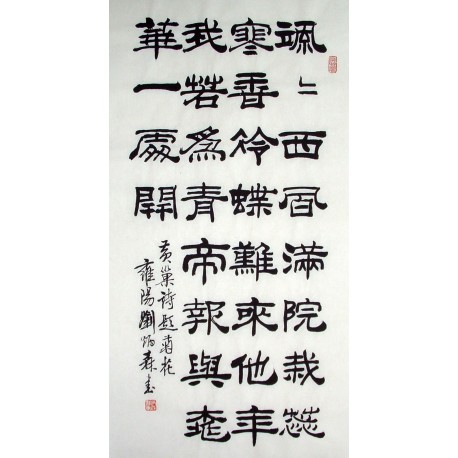 颯〻西風滿院栽蕊
寒香冷蝶難來他年
我若爲青帝報與桃
華一處開
黃巢詩題菊花
雍陽劉炳森書